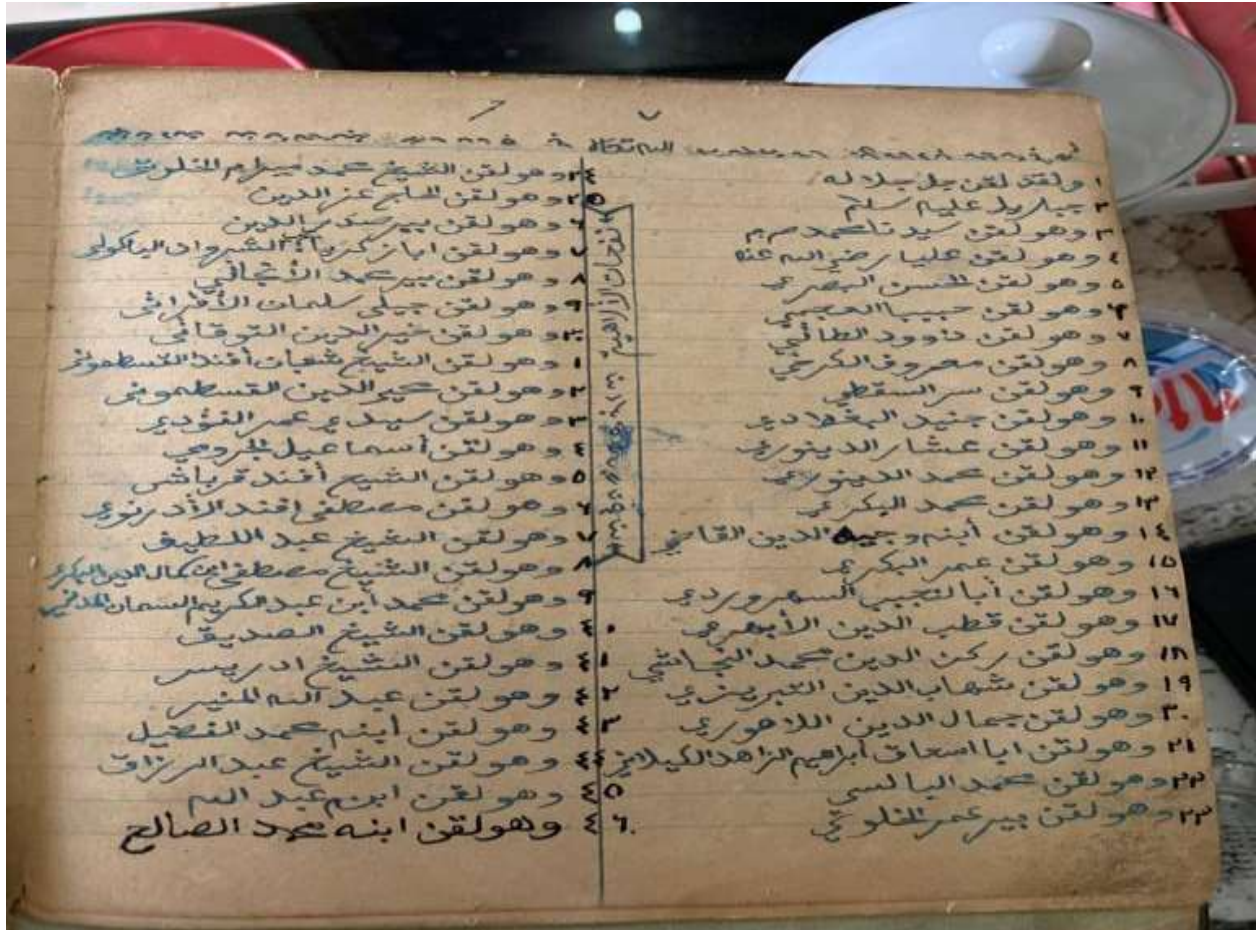 ٧
١ ولقد لقن جل جلاله
٢ جباريل عليه سلم
٣ وهو لقن سيدنا محمد
٤ وهو لقن عليا رضي الله عنه
٥ وهو لقن الحسن البصري
٦ وهو لقن حبيبا العجمي
٧ وهو لقن داوود الطائي
٨ وهو لقن معروف الكرخي
٩ وهو لقن سر السقطي
١٠ وهو لقن جنيد البغدادي
١١ وهو لقن عشار الدينوري
١٢ وهو لقن محمد الدينوري
١٣ وهو لقن محمد البكري
١٤ وهو لقن أبنه وجيه الدين القاضي
١٥ وهو لقن عمر البكري
١٦ وهو لقن أبا لنجيب السهروردي
١٧ وهو لقن قطب الدين الأبهري
١٨ وهو لقن ركن الدين محمد النجاشي
١٩ وهو لقن شهاب الدين التبريزي
٢٠ وهو لقن جمال الدين اللاهوري
٢١ وهو لقن ابا اسحاق ابراهيم الزاهد الكيلاني
٢٢ وهو لقن محمد البالسي
٢٣ وهو لقن بير عمر الخلوتي
٢٤ وهو لقن الشيخ محمد ميرام الخلوتي
٢٥ وهو لقن الحاج عز الدين
٦ وهو لقن بير صدر الدين
٧ وهو لقن ابا زكريا الشرواني الباكوئي
٨ وهو لقن بير محمد الأنجاني
٩ وهو لقن جيلي سلطان الأقرائي
٣٠ وهو لقن خير الدين التوقاتي
١ وهو لقن الشيخ شعبان أفند القسطموني
٢ وهو لقن محيي الدين القسطموني
٣ وهو لقن سيدي عمر الفؤدي
٤ وهو لقن أسماعيل الجرومي
٥ وهو لقن الشيخ أفند قرباش
٦ وهو لقن مصطفى افند الأدرنوي
٧ وهو لقن الشيخ عبد اللطيف
٨ وهو لقن الشيخ مصطفى ابن كمال الدين البكري
٩ وهو لقن محمد أبن عبد الكريم السمان المدني
٤٠ وهو لقن الشيخ الصديق
٤١ وهو لقن الشيخ ادريس
٤٢ وهو لقن عبد الله المنير
٤٣ وهو لقن أبنه محمد الفضيل
٤٤ وهو لقن الشيخ عبد الرزاق
٤٥ وهو لقن ابنه عبد الله
٤٦ وهو لقن ابنه محمد الصالح